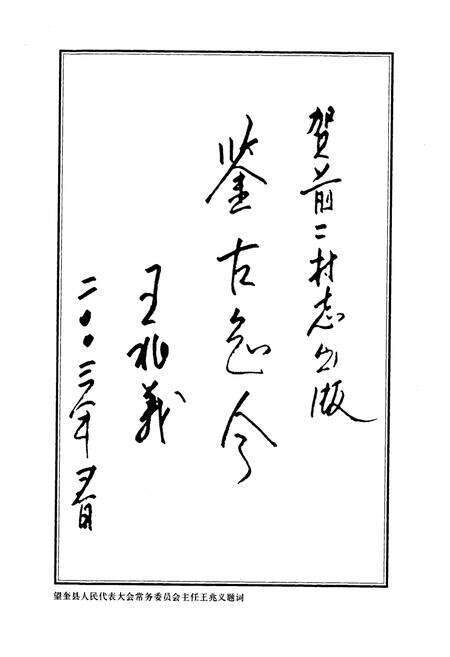 贺前二村志出版
鉴古勉今
王兆義
二〇〇三年
望奎县人民代表大会常务委员会主任王兆义题词